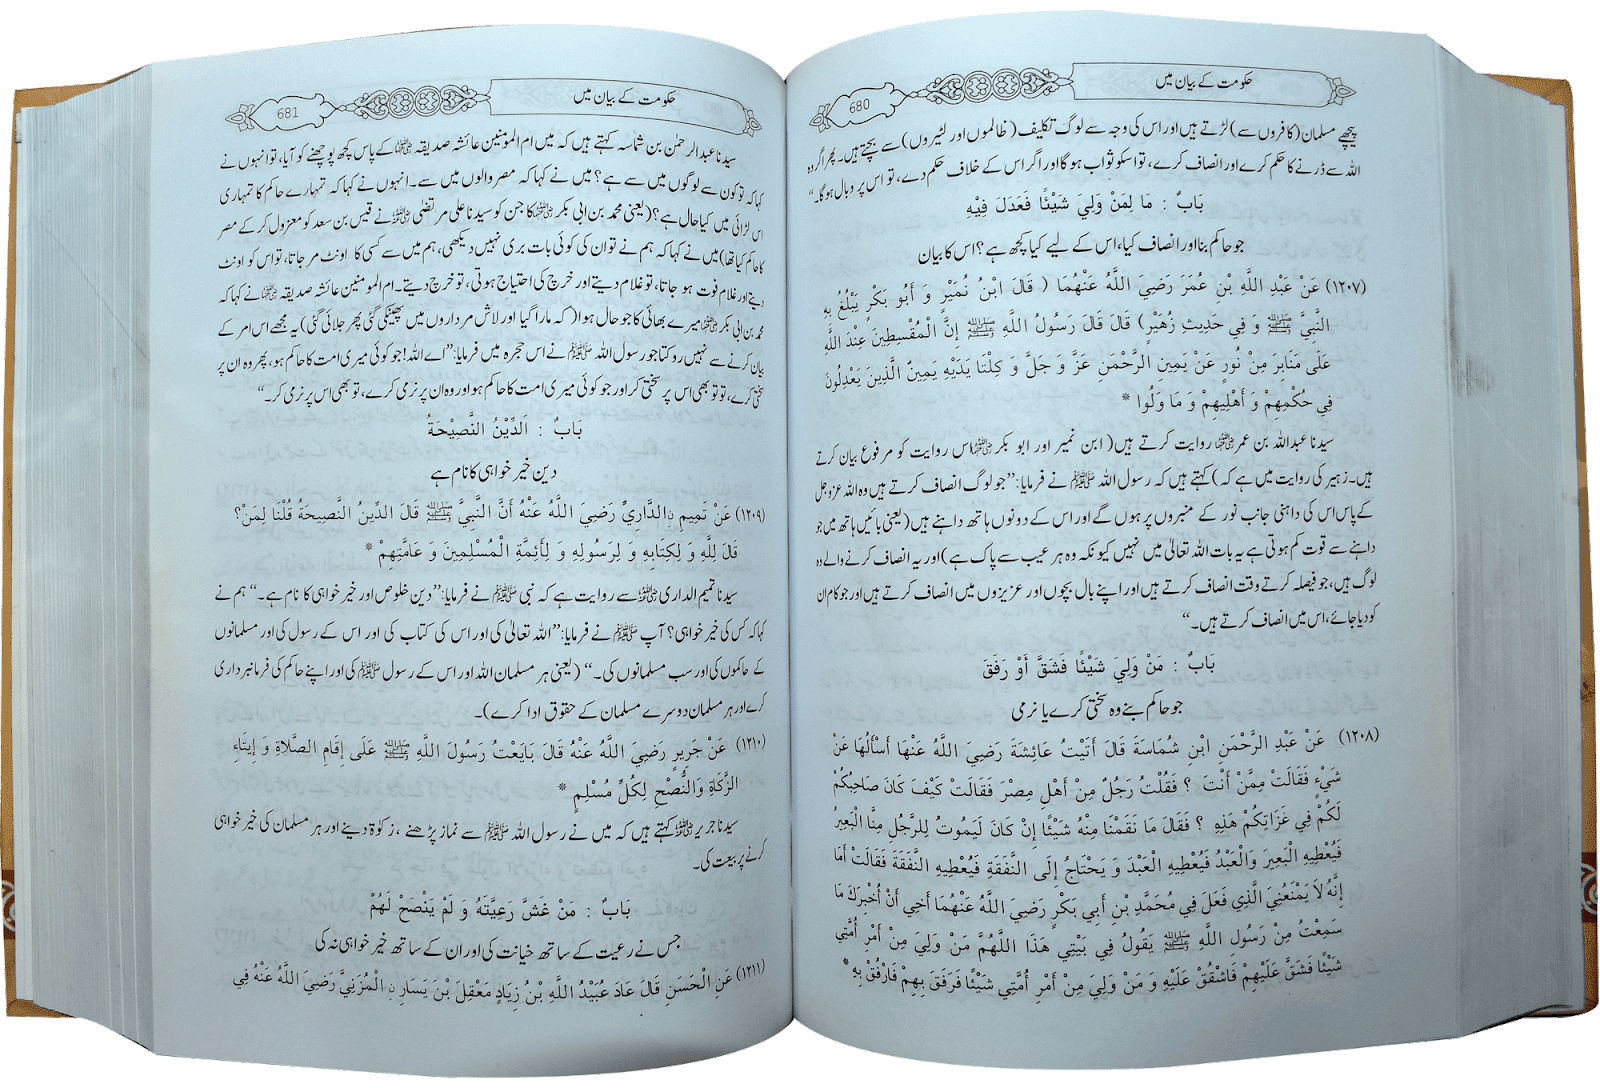 حکومت کے بیان میں
680
پیچھے مسلمان (کافروں سے) لڑتے ہیں اور اس کی وجہ سے لوگ تکلیف (ظالموں اور لٹیروں) سے بچتے ہیں۔ پھر اگر وہ
اللہ سے ڈرنے کا حکم کرے اور انصاف کرے، تو اسکو ثواب ہوگا اور اگر اس کے خلاف حکم دے، تو اس پر وبال ہوگا۔“
بَابٌ : مَا لِمَنْ وَلِيَ شَيْئًا فَعَدَلَ فِيْهِ
جو حاکم بنا اور انصاف کیا، اس کے لیے کیا کچھ ہے؟ اس کا بیان
(١٢٠٧) عَنْ عَبْدِ اللَّهِ بْنِ عُمَرَ رَضِيَ اللَّهُ عَنْهُمَا ( قَالَ ابْنُ نُمَيْرٍ وَ أَبُو بَكْرٍ يَبْلُغُ بِهِ
النَّبِيَّ ﷺ وَ فِي حَدِيثِ زُهَيْرٍ) قَالَ قَالَ رَسُولُ اللَّهِ ﷺ إِنَّ الْمُقْسِطِينَ عِنْدَ اللَّهِ
عَلَى مَنَابِرَ مِنْ نُورٍ عَنْ يَمِينِ الرَّحْمَنِ عَزَّ وَ جَلَّ وَ كِلْتَا يَدَيْهِ يَمِينٌ الَّذِينَ يَعْدِلُونَ
فِي حُكْمِهِمْ وَ أَهْلِيهِمْ وَ مَا وَلُوا *
سیدنا عبداللہ بن عمر ؓ روایت کرتے ہیں (ابن نمیر اور ابو بکر ؓ اس روایت کو مرفوع بیان کرتے
ہیں۔ زہیر کی روایت میں ہے کہ) کہتے ہیں کہ رسول اللہ ﷺ نے فرمایا: ”جو لوگ انصاف کرتے ہیں وہ اللہ عزوجل
کے پاس اس کی داہنی جانب نور کے منبروں پر ہوں گے اور اس کے دونوں ہاتھ داہنے ہیں (یعنی بائیں ہاتھ میں جو
داہنے سے قوت کم ہوتی ہے یہ بات اللہ تعالیٰ میں نہیں کیونکہ وہ ہر عیب سے پاک ہے) اور یہ انصاف کرنے والے وہ
لوگ ہیں، جو فیصلہ کرتے وقت انصاف کرتے ہیں اور اپنے بال بچوں اور عزیزوں میں انصاف کرتے ہیں اور جو کام ان
کو دیا جائے، اس میں انصاف کرتے ہیں۔“
بَابٌ : مَنْ وَلِيَ شَيْئًا فَشَقَّ أَوْ رَفَقَ
جو حاکم بنے وہ سختی کرے یا نرمی
(١٢٠٨) عَنْ عَبْدِ الرَّحْمَنِ ابْنِ شُمَاسَةَ قَالَ أَتَيْتُ عَائِشَةَ رَضِيَ اللَّهُ عَنْهَا أَسْأَلُهَا عَنْ
شَيْءٍ فَقَالَتْ مِمَّنْ أَنْتَ ؟ فَقُلْتُ رَجُلٌ مِنْ أَهْلِ مِصْرَ فَقَالَتْ كَيْفَ كَانَ صَاحِبُكُمْ
لَكُمْ فِي غَزَاتِكُمْ هَذِهِ ؟ فَقَالَ مَا نَقَمْنَا مِنْهُ شَيْئًا إِنْ كَانَ لَيَمُوتُ لِلرَّجُلِ مِنَّا الْبَعِيرُ
فَيُعْطِيهِ الْبَعِيرَ وَالْعَبْدُ فَيُعْطِيهِ الْعَبْدَ وَ يَحْتَاجُ إِلَى النَّفَقَةِ فَيُعْطِيهِ النَّفَقَةَ فَقَالَتْ أَمَا
إِنَّهُ لَا يَمْنَعُنِيَ الَّذِي فَعَلَ فِي مُحَمَّدِ بْنِ أَبِي بَكْرٍ رَضِيَ اللَّهُ عَنْهُمَا أَخِي أَنْ أُخْبِرَكَ مَا
سَمِعْتُ مِنْ رَسُولِ اللَّهِ ﷺ يَقُولُ فِي بَيْتِي هَذَا اللَّهُمَّ مَنْ وَلِيَ مِنْ أَمْرِ أُمَّتِي
شَيْئًا فَشَقَّ عَلَيْهِمْ فَاشْقُقْ عَلَيْهِ وَ مَنْ وَلِيَ مِنْ أَمْرِ أُمَّتِي شَيْئًا فَرَفَقَ بِهِمْ فَارْفُقْ بِهِ *
حکومت کے بیان میں
681
سیدنا عبدالرحمٰن بن شماسہ کہتے ہیں کہ میں ام المومنین عائشہ صدیقہ ؓ کے پاس کچھ پوچھنے کو آیا، تو انہوں نے
کہا کہ تو کون سے لوگوں میں سے ہے؟ میں نے کہا کہ مصر والوں میں سے۔ انہوں نے کہا کہ تمہارے حاکم کا تمہاری
اس لڑائی میں کیا حال ہے؟ (یعنی محمد بن ابی بکر ؓ کا جن کو سیدنا علی مرتضیٰ ؓ نے قیس بن سعد کو معزول کر کے مصر
کا حاکم کیا تھا) میں نے کہا کہ ہم نے تو ان کی کوئی بات بری نہیں دیکھی، ہم میں سے کسی کا اونٹ مر جاتا، تو اس کو اونٹ
دیتے اور غلام فوت ہو جاتا، تو غلام دیتے اور خرچ کی احتیاج ہوتی، تو خرچ دیتے۔ ام المومنین عائشہ صدیقہ ؓ نے کہا کہ
محمد بن ابی بکر ؓ میرے بھائی کا جو حال ہوا (کہ مارا گیا اور لاش مرداروں میں پھینکی گئی پھر جلائی گئی) یہ مجھے اس امر کے
بیان کرنے سے نہیں روکتا جو رسول اللہ ﷺ نے اس حجرہ میں فرمایا: ”اے اللہ! جو کوئی میری امت کا حاکم ہو، پھر وہ ان پر
سختی کرے، تو تو بھی اس پر سختی کر اور جو کوئی میری امت کا حاکم ہو اور وہ ان پر نرمی کرے، تو بھی اس پر نرمی کر۔“
بَابٌ : اَلدِّيْنُ النَّصِيْحَةُ
دین خیر خواہی کا نام ہے
(١٢٠٩) عَنْ تَمِيمٍ نِ الدَّارِيِّ رَضِيَ اللَّهُ عَنْهُ أَنَّ النَّبِيَّ ﷺ قَالَ الدِّينُ النَّصِيحَةُ قُلْنَا لِمَنْ؟
قَالَ لِلَّهِ وَ لِكِتَابِهِ وَ لِرَسُولِهِ وَ لِأَئِمَّةِ الْمُسْلِمِينَ وَ عَامَّتِهِمْ *
سیدنا تمیم الداری ؓ سے روایت ہے کہ نبی ﷺ نے فرمایا: ”دین خلوص اور خیر خواہی کا نام ہے۔“ ہم نے
کہا کہ کس کی خیر خواہی؟ آپ ﷺ نے فرمایا: ”اللہ تعالیٰ کی اور اس کی کتاب کی اور اس کے رسول کی اور مسلمانوں
کے حاکموں کی اور سب مسلمانوں کی۔“ (یعنی ہر مسلمان اللہ اور اس کے رسول ﷺ کی اور اپنے حاکم کی فرمانبرداری
کرے اور ہر مسلمان دوسرے مسلمان کے حقوق ادا کرے)۔
(١٢١٠) عَنْ جَرِيرٍ رَضِيَ اللَّهُ عَنْهُ قَالَ بَايَعْتُ رَسُولَ اللَّهِ ﷺ عَلَى إِقَامِ الصَّلَاةِ وَ إِيتَاءِ
الزَّكَاةِ وَالنُّصْحِ لِكُلِّ مُسْلِمٍ *
سیدنا جریر ؓ کہتے ہیں کہ میں نے رسول اللہ ﷺ سے نماز پڑھنے ، زکوٰۃ دینے اور ہر مسلمان کی خیر خواہی
کرنے پر بیعت کی۔
بَابٌ : مَنْ غَشَّ رَعِيَّتَهُ وَ لَمْ يَنْصَحْ لَهُمْ
جس نے رعیت کے ساتھ خیانت کی اور ان کے ساتھ خیر خواہی نہ کی
(١٢١١) عَنِ الْحَسَنِ قَالَ عَادَ عُبَيْدُ اللَّهِ بْنُ زِيَادٍ مَعْقِلَ بْنَ يَسَارٍ نِ الْمُزَنِيَّ رَضِيَ اللَّهُ عَنْهُ فِي